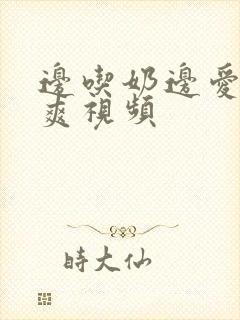 邊喫奶邊愛
爽視頻
時大仙